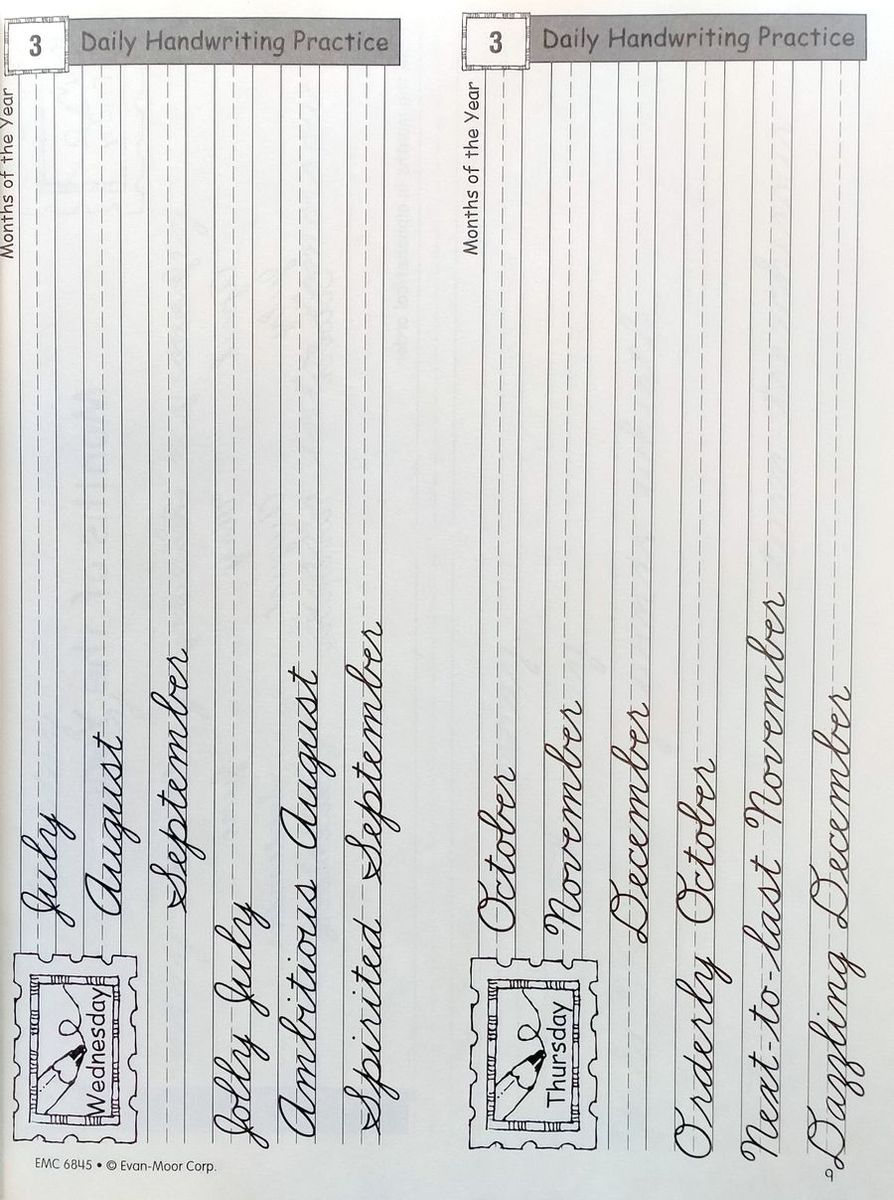 3
Daily Handwriting Practice
Months of the Year
Wednesday
July
August
September
Jolly July
Ambitious August
Spirited September
EMC 6845 • © Evan-Moor Corp.
3
Daily Handwriting Practice
Months of the Year
Thursday
October
November
December
Orderly October
Next-to-last November
Dazzling December
9